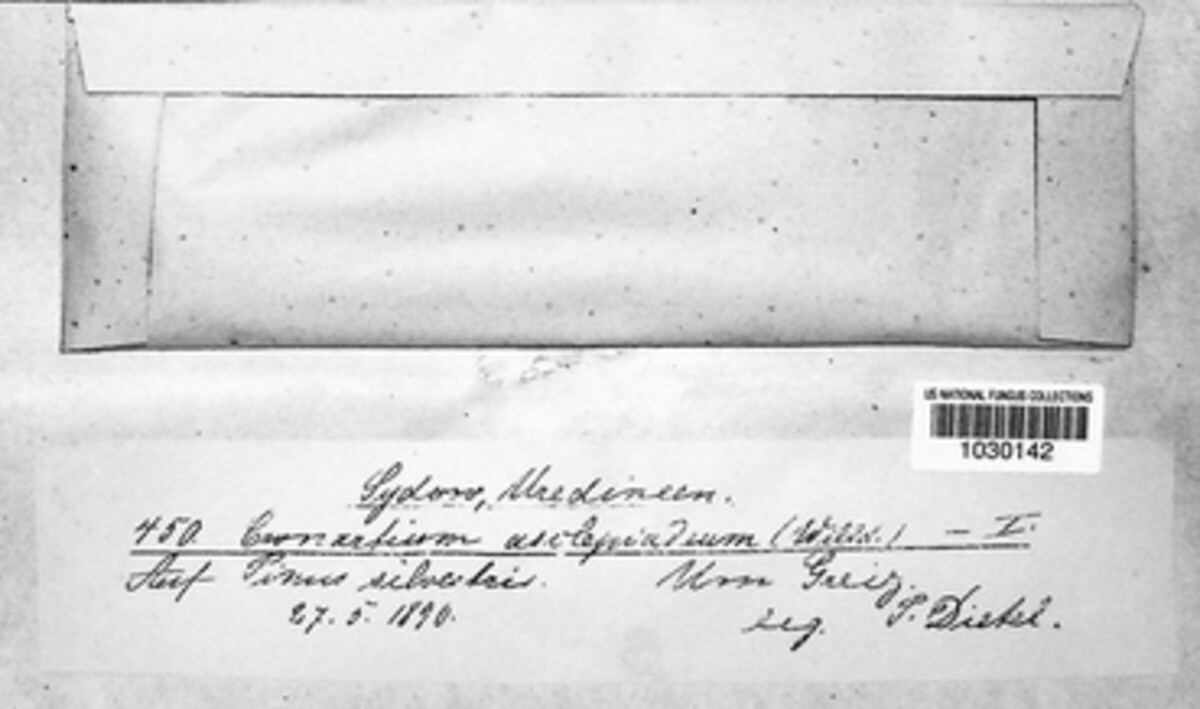 US NATIONAL FUNGUS COLLECTIONS
1030142
Sydow, Uredineen.
450 Cronartium asclepiadeum (Willd.) – I.
Auf Pinus silvestris. Um Greiz.
27. 5. 1890. leg. P. Dietel.